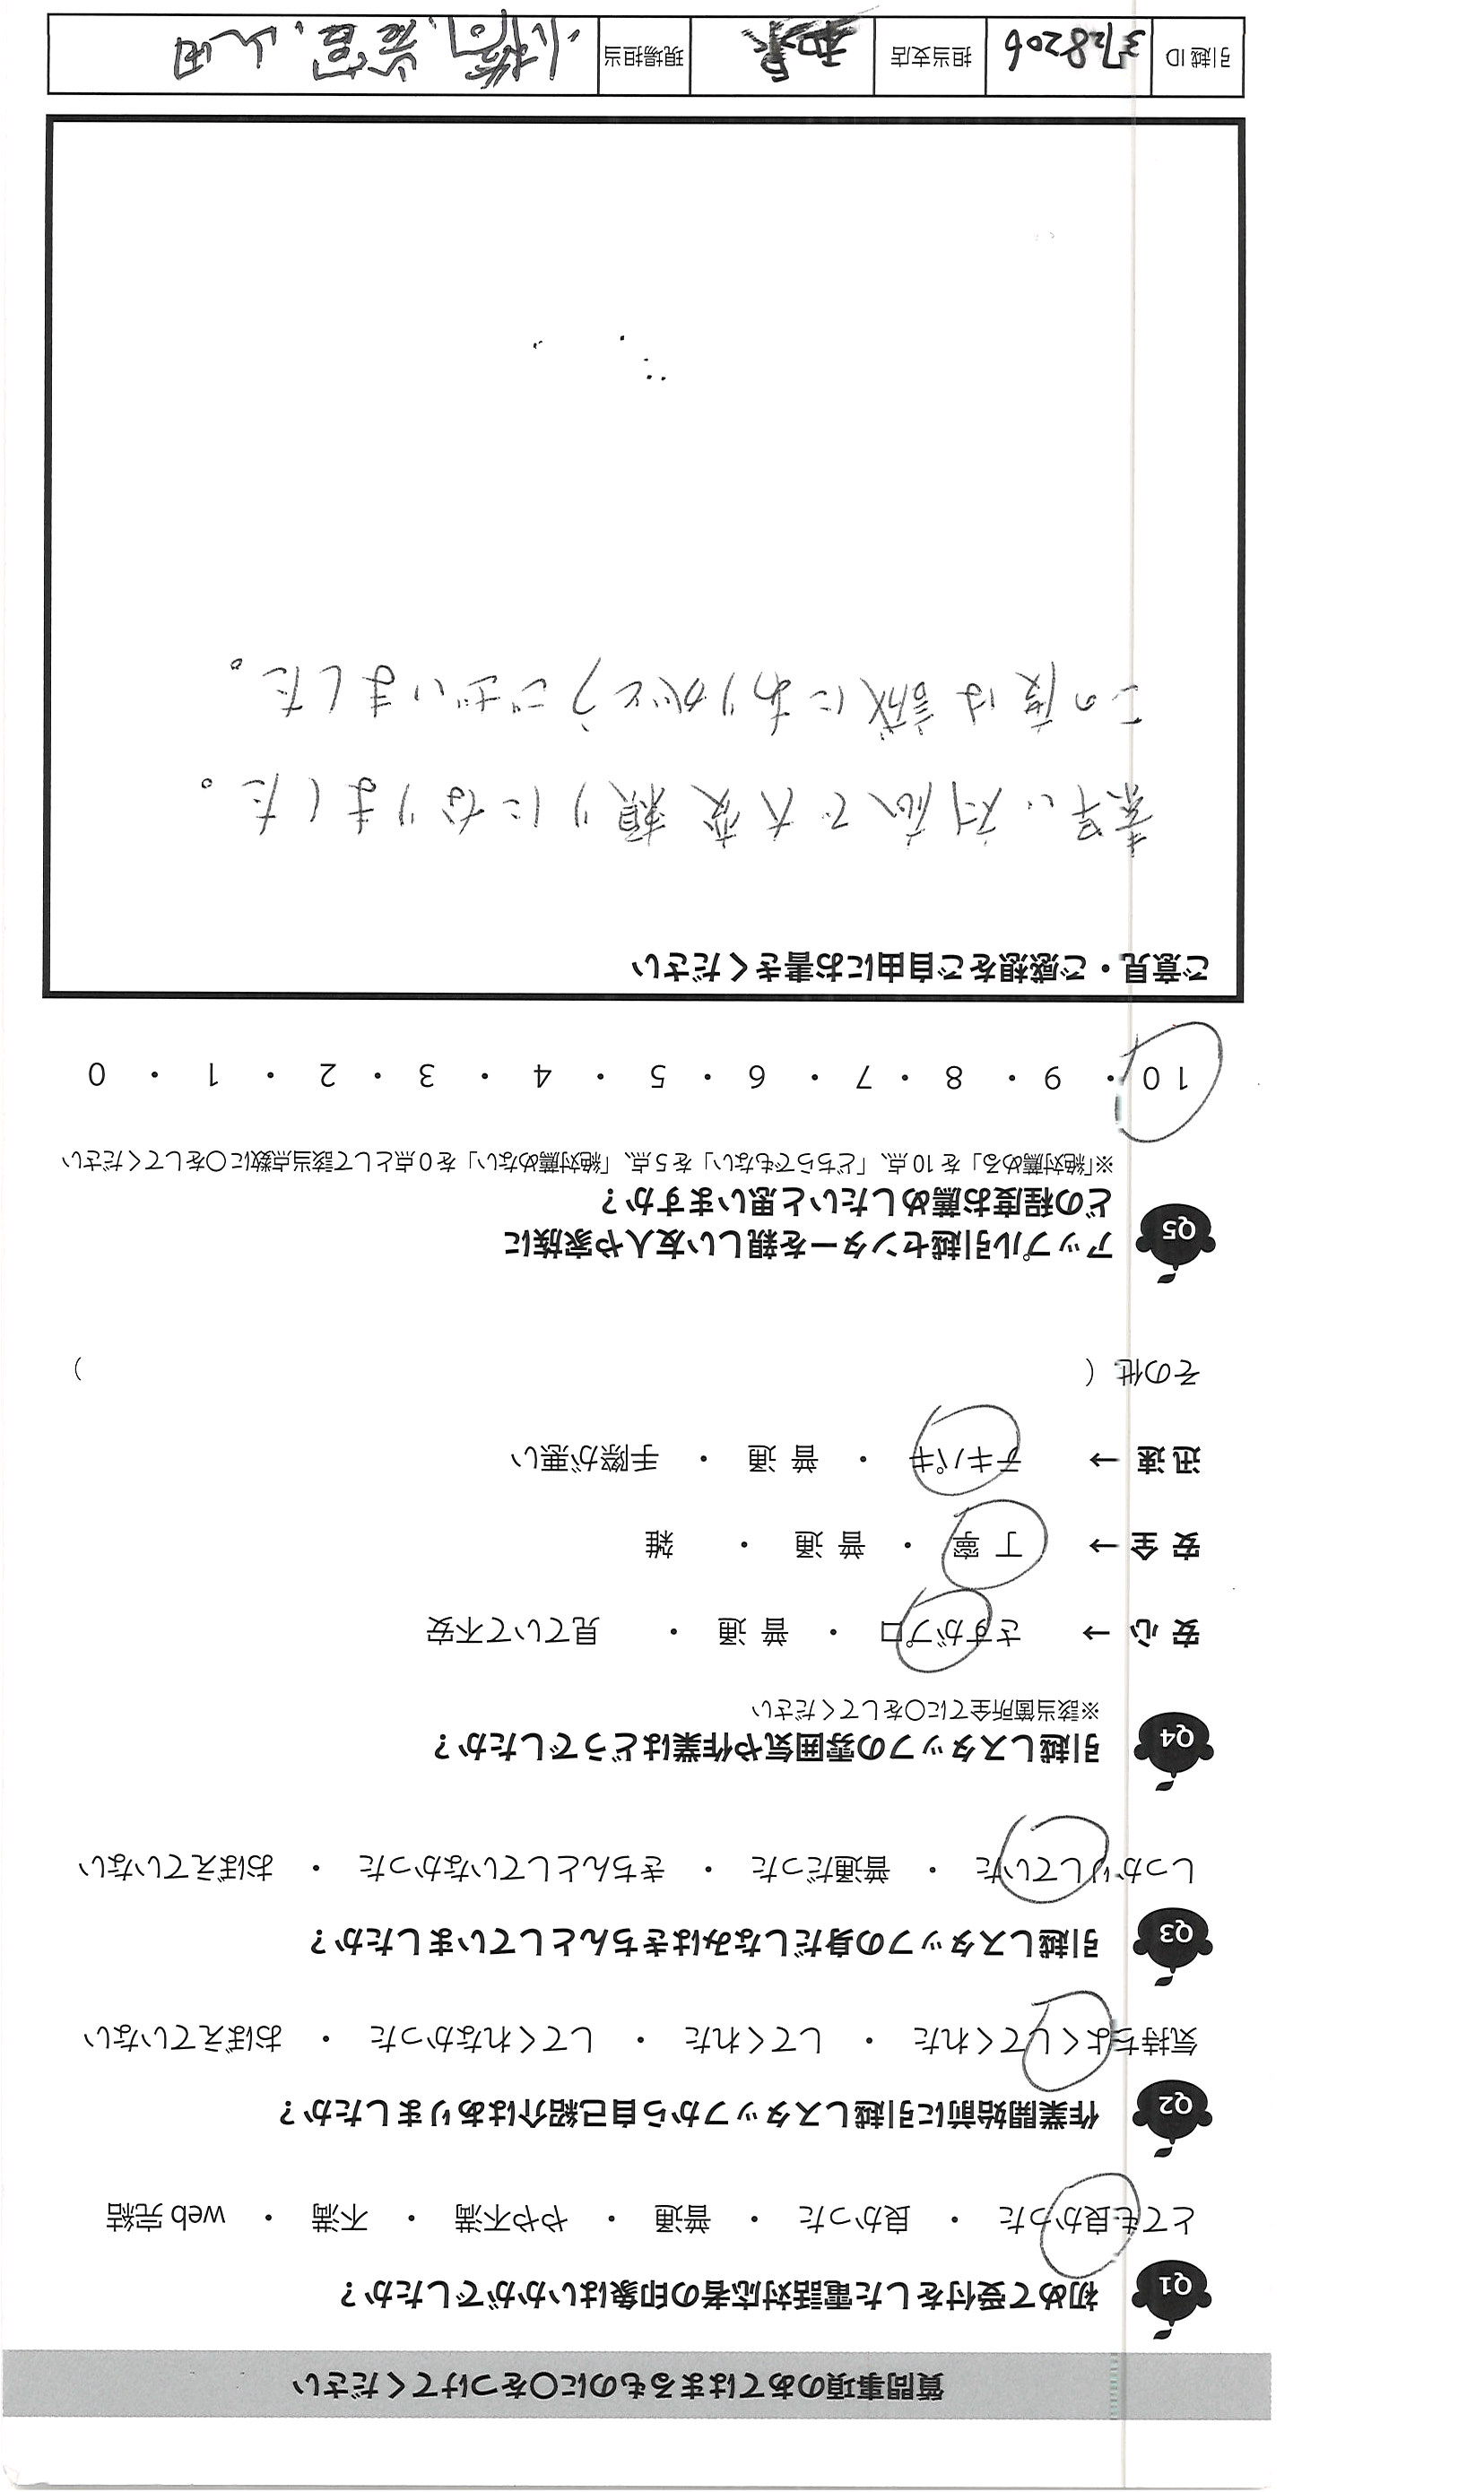 質問事項のあてはまるものに〇をつけてください
Q1 初めて受付をした電話対応者の印象はいかがでしたか？
とても良かった ・ 良かった ・ 普通 ・ やや不満 ・ 不満 ・ web 完結
Q2 作業開始前に引越しスタッフから自己紹介はありましたか？
気持ちよくしてくれた ・ してくれた ・ してくれなかった ・ おぼえていない
Q3 引越しスタッフの身だしなみはきちんとしていましたか？
しっかりしていた ・ 普通だった ・ きちんとしていなかった ・ おぼえていない
Q4 引越しスタッフの雰囲気や作業はどうでしたか？
※該当箇所全てに〇をしてください
安心→ さすがプロ ・ 普通 ・ 見ていて不安
安全→ 丁寧 ・ 普通 ・ 雑
迅速→ テキパキ ・ 普通 ・ 手際が悪い
その他（ ）
Q5 アップル引越センターを親しい友人や家族に
どの程度お薦めしたいと思いますか？
※「絶対薦める」を10点、「どちらでもない」を5点、「絶対薦めない」を0点として該当点数に〇をしてください
10 ・ 9 ・ 8 ・ 7 ・ 6 ・ 5 ・ 4 ・ 3 ・ 2 ・ 1 ・ 0
ご意見・ご感想をご自由にお書きください
素早い対応で大変頼りになりました。
この度は誠にありがとうございました。
引越ID 担当支店 現場担当 小橋、 、山田